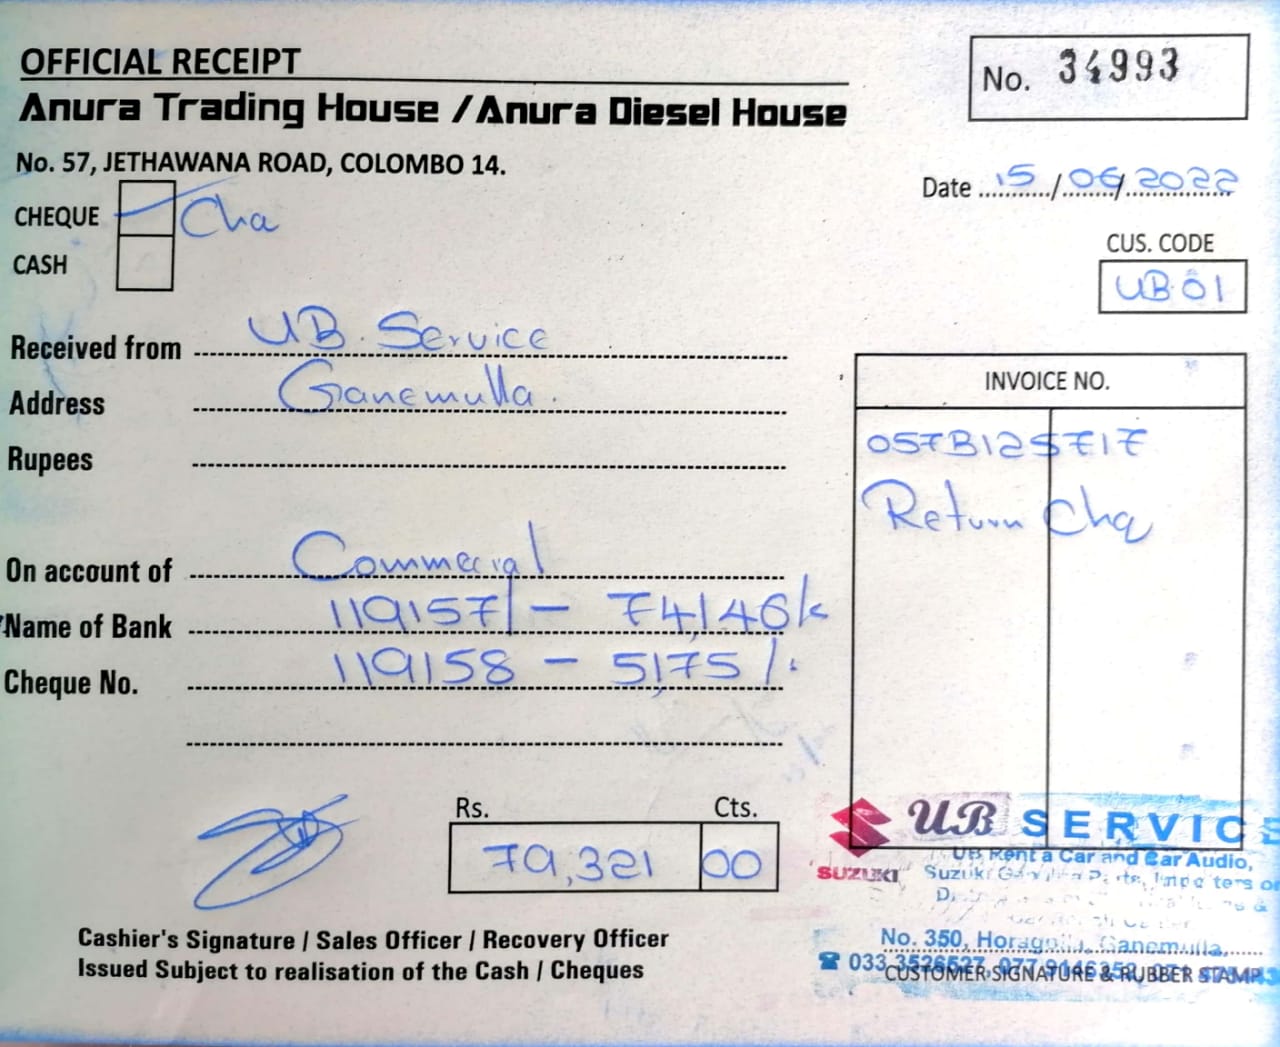 OFFICIAL RECEIPT
No. 34993
Anura Trading House / Anura Diesel House
No. 57, JETHAWANA ROAD, COLOMBO 14.
Date 15/06/2022
CHEQUE Cha
CASH
CUS. CODE
UB.01
Received from UB. Service
Address Ganemulla.
Rupees
INVOICE NO.
057B125717
Return Cha
On account of Commercial
Name of Bank 119157 - 74,146/-
Cheque No. 119158 - 5,175/-
Rs. Cts.
79,321 00
UB SERVICE
SUZUKI
UB Rent a Car and Car Audio,
Suzuki Parts, Importers
No. 350, Ganemulla,
033 3526527, 077
Cashier's Signature / Sales Officer / Recovery Officer
Issued Subject to realisation of the Cash / Cheques
CUSTOMER SIGNATURE & RUBBER STAMP